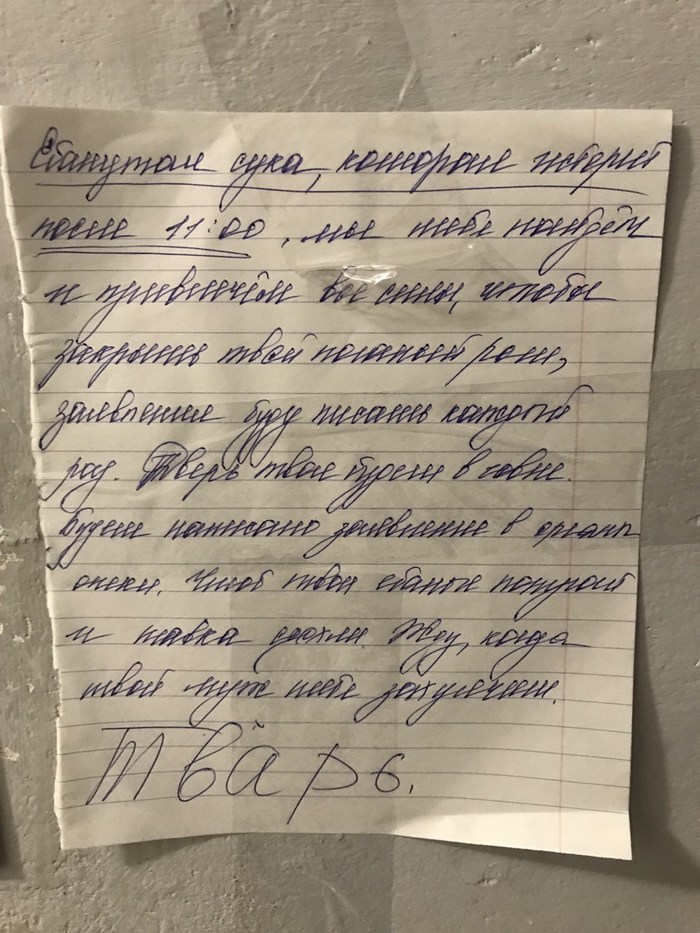 Ебанутая сука, которая истерит
после 11:00, мы тебя найдём
и привлечём все силы, чтобы
закрыть твой поганый рот,
заявление буду писать каждый
раз. Дверь твоя будет в говне.
Будет написано заявление в органы
опеки. Чтоб твои ебаные попугай
и шавка сдохли. Жду, когда
твой муж тебя
Тварь.